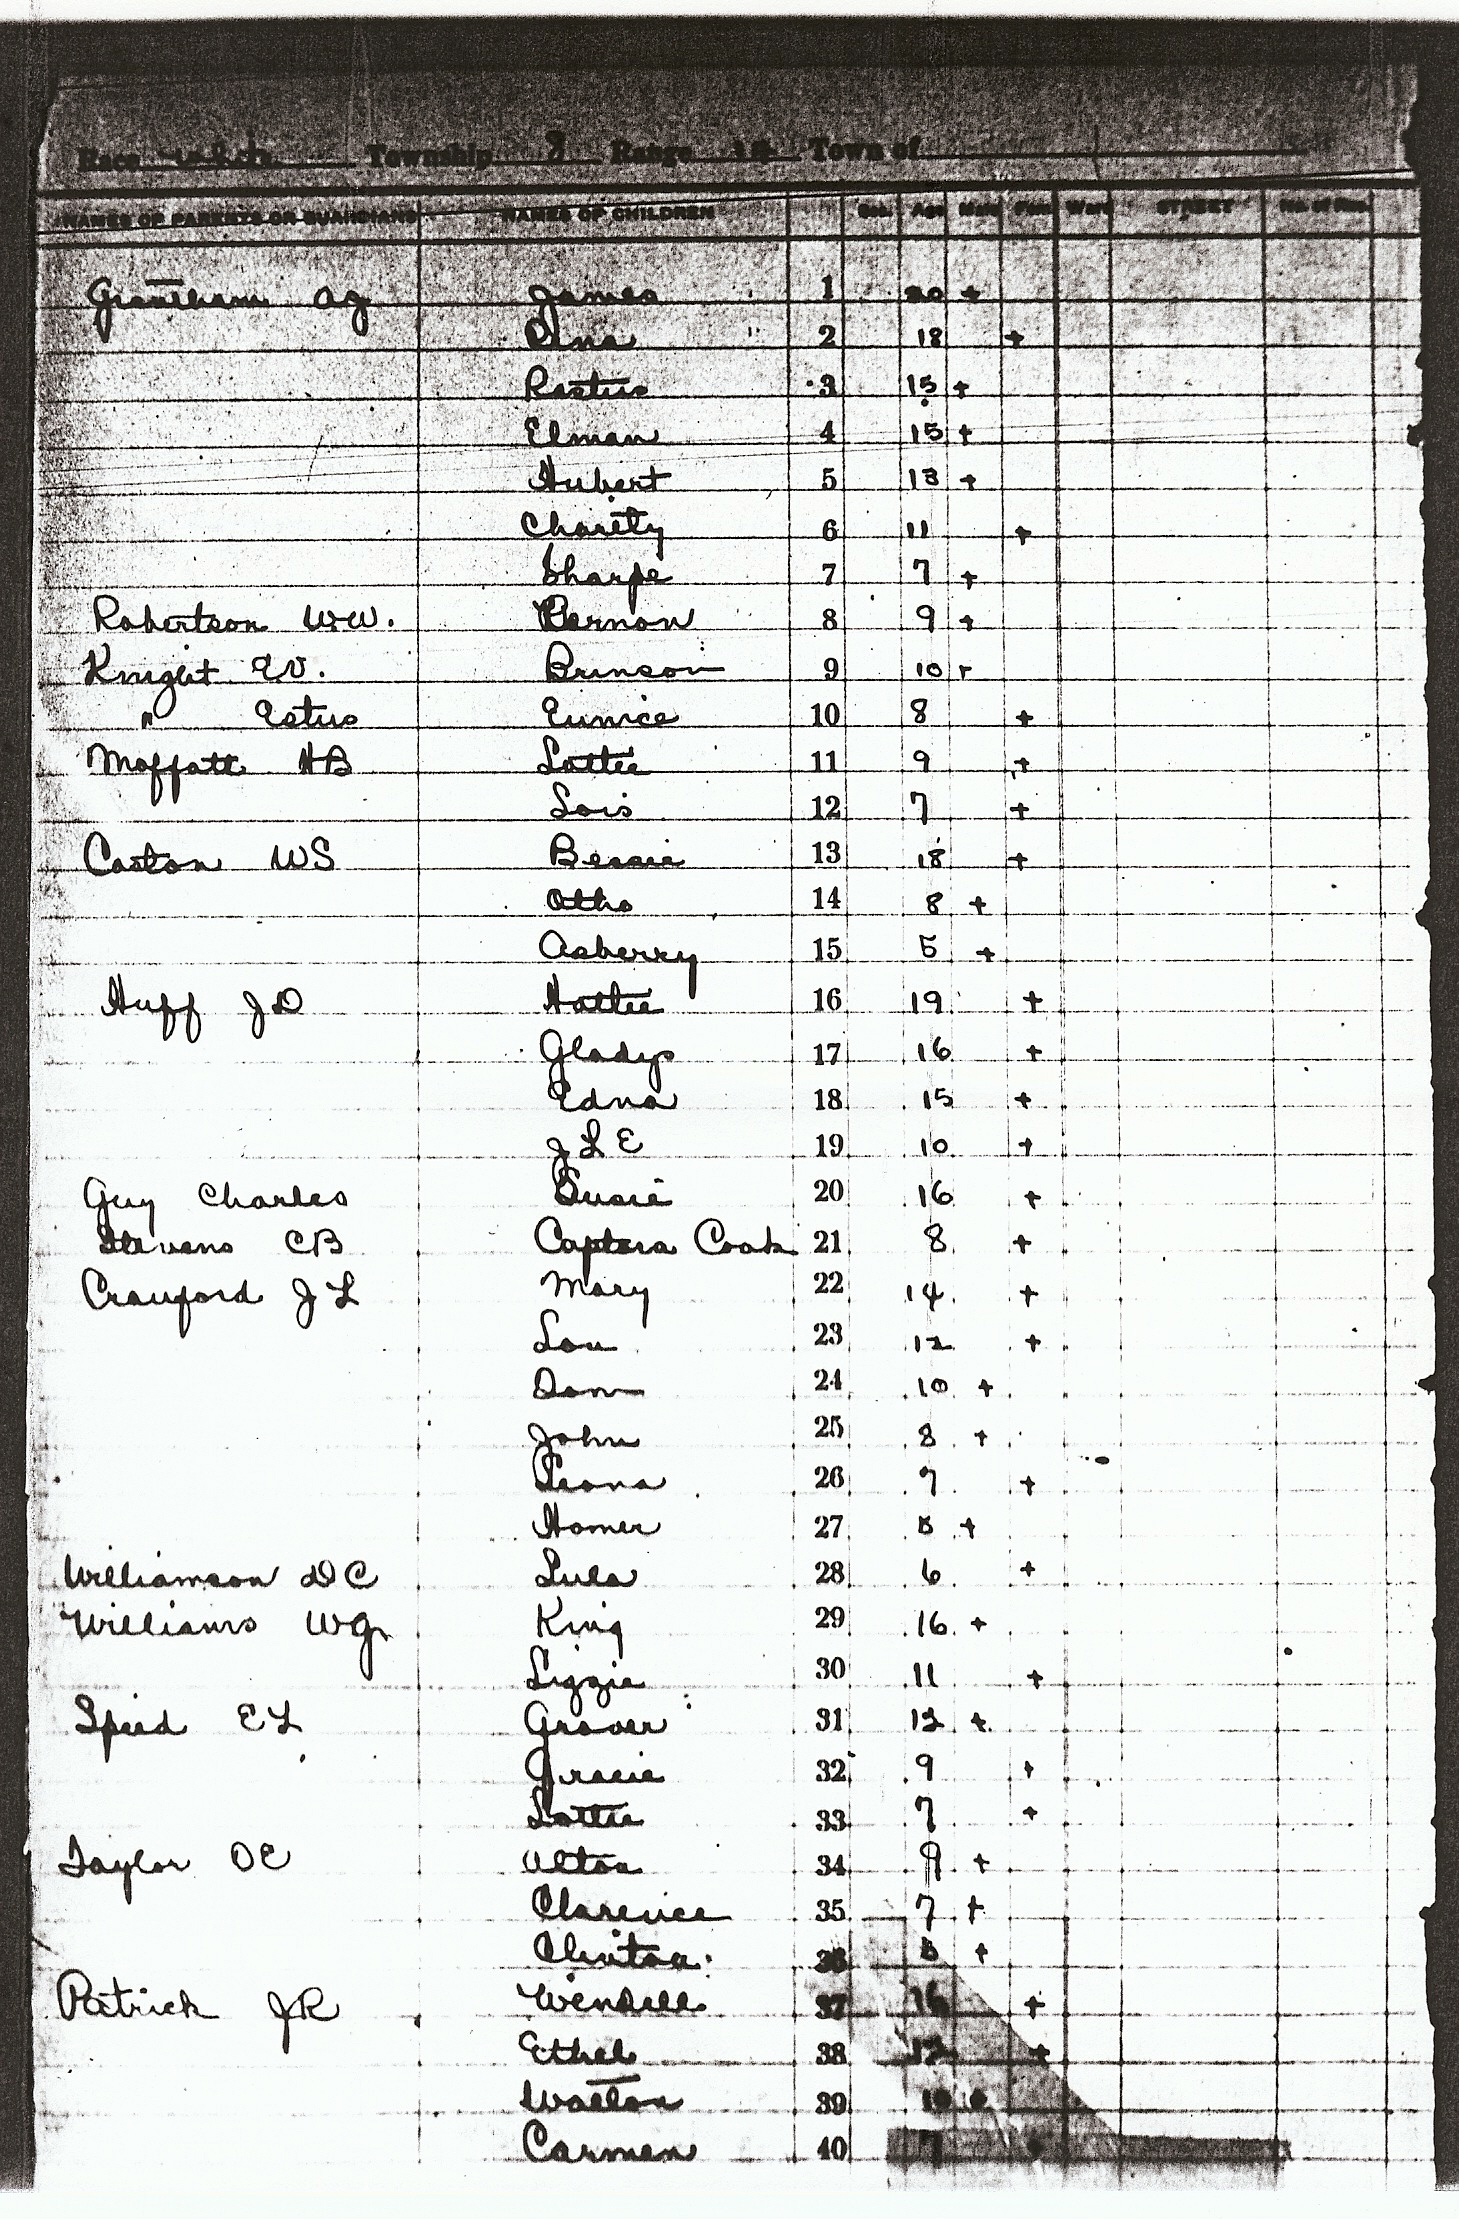 Race White Township 8 Range Town of
NAMES OF PARENTS OR GUARDIANS NAMES OF CHILDREN Sec. Age Male Fem Ward STREET No. of Res.
Grantham AJ James 1 20 +
" 2 18 +
Rastus 3 15 +
Elman 4 15 +
Hubert 5 13 +
Charity 6 11 +
Sharpe 7 7 +
Robertson W.W. Vernon 8 9 +
Knight EV. Brinson 9 10 +
" Estus Eunice 10 8 +
Moffatt HB Lottie 11 9 +
Lois 12 7 +
Caston WS Bessie 13 18 +
Otho 14 8 +
Asberry 15 5 +
Huff JD Hattie 16 19 +
Gladys 17 16 +
Edna 18 15 +
J L E 19 10 +
Guy Charles Susie 20 16 +
Stevens CB Captora Cook 21 8 +
Crawford J L Mary 22 14 +
Lou 23 12 +
Dom 24 10 +
John 25 8 +
Leona 26 7 +
Homer 27 5 +
Williamson DC Lula 28 6 +
Williams WG King 29 16 +
Lizzie 30 11 +
Speed EL Grover 31 12 +
Gracie 32 9 +
Lottie 33 7 +
Taylor OE Alton 34 9 +
Clarence 35 7 +
Clinton 36 5 +
Patrick JR Wendell 37 16 +
Ethel 38 12 +
Walton 39 10 +
Carmen 40 7 +